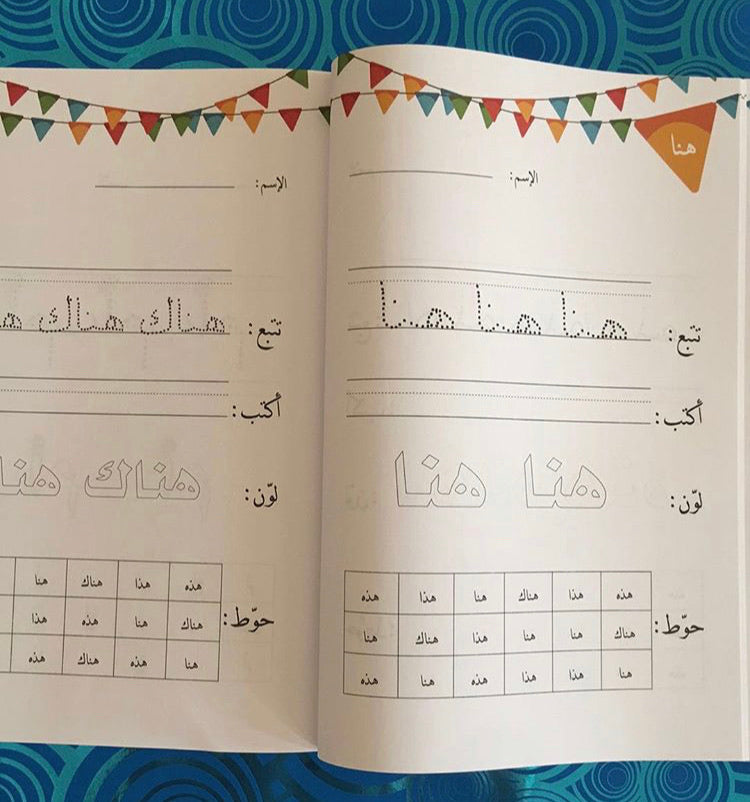 هنا
الإسم:
تتبع: هنا هنا هنا
أكتب:
لوّن: هنا هنا
حوّط:
هذه هذا هناك هنا هذا هذه
هناك هنا هنا هذا هناك هنا
هنا هذا هذا هذه هنا هذه
الإسم:
تتبع: هناك هناك
أكتب:
لوّن: هناك هنا
حوّط:
هذه هذا هناك هنا
هناك هنا هذه هذا
هنا هذه هناك هذه